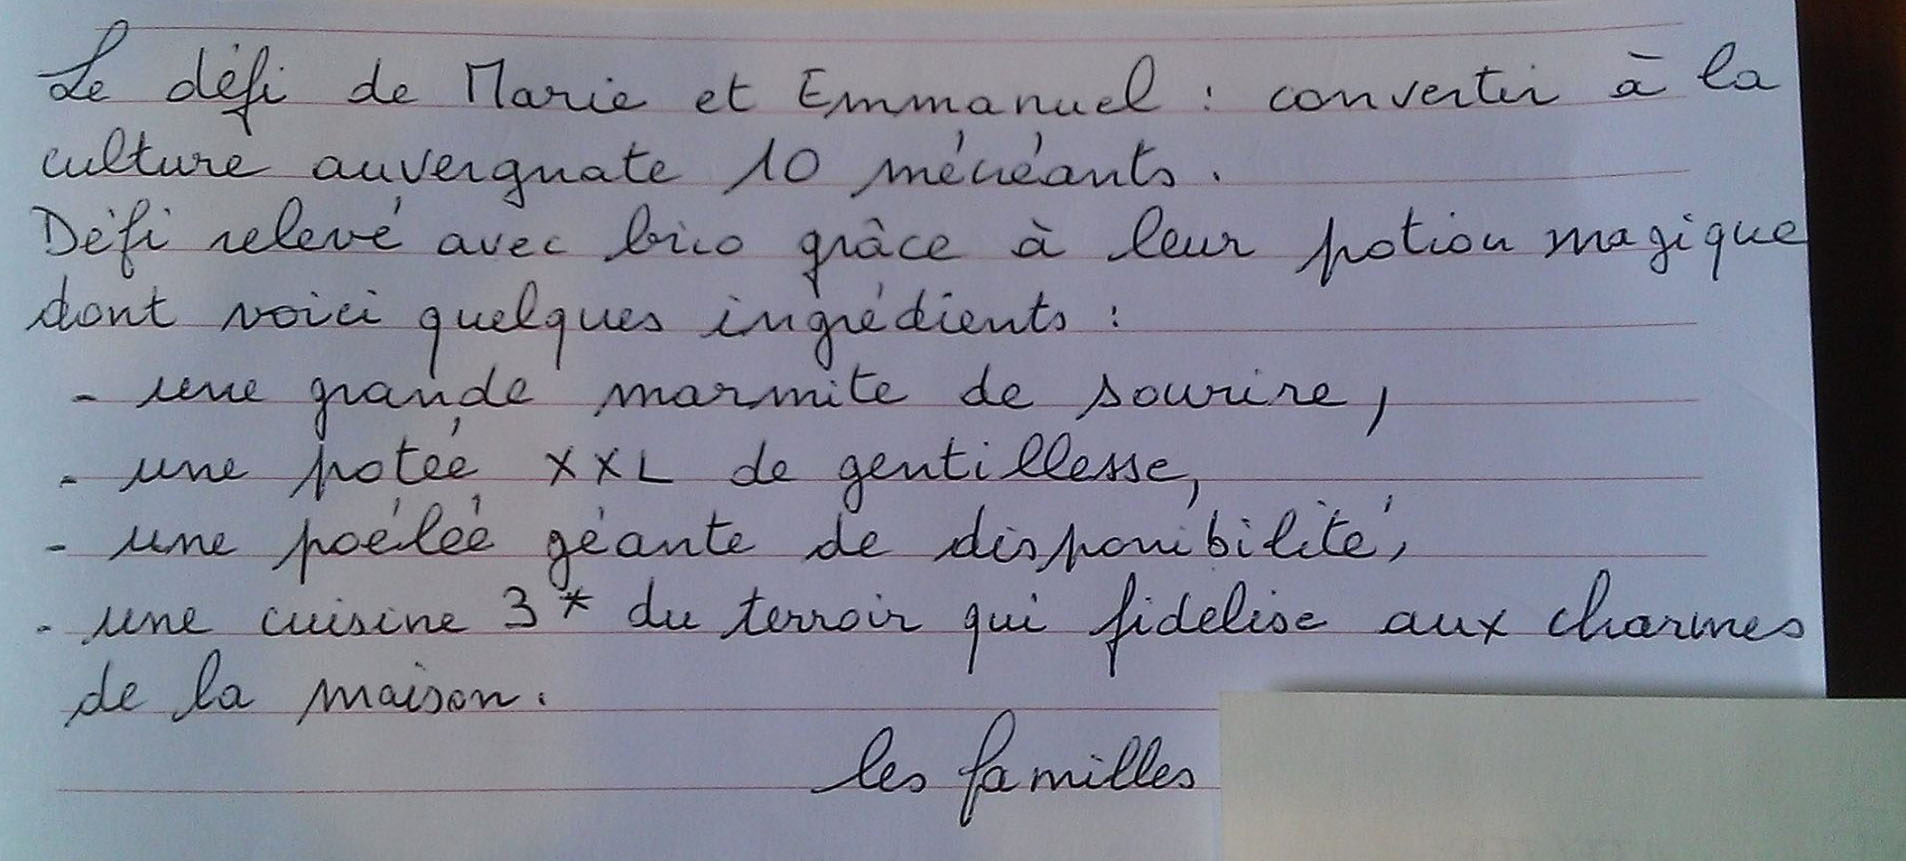 Le défi de Marie et Emmanuel : convertir à la
culture auvergnate 10 mécréants.
Défi relevé avec brio grâce à leur potion magique
dont voici quelques ingrédients :
- une grande marmite de sourire,
- une potée XXL de gentillesse,
- une poélée géante de disponibilité,
- une cuisine 3* du terroir qui fidélise aux charmes
de la maison.
les familles